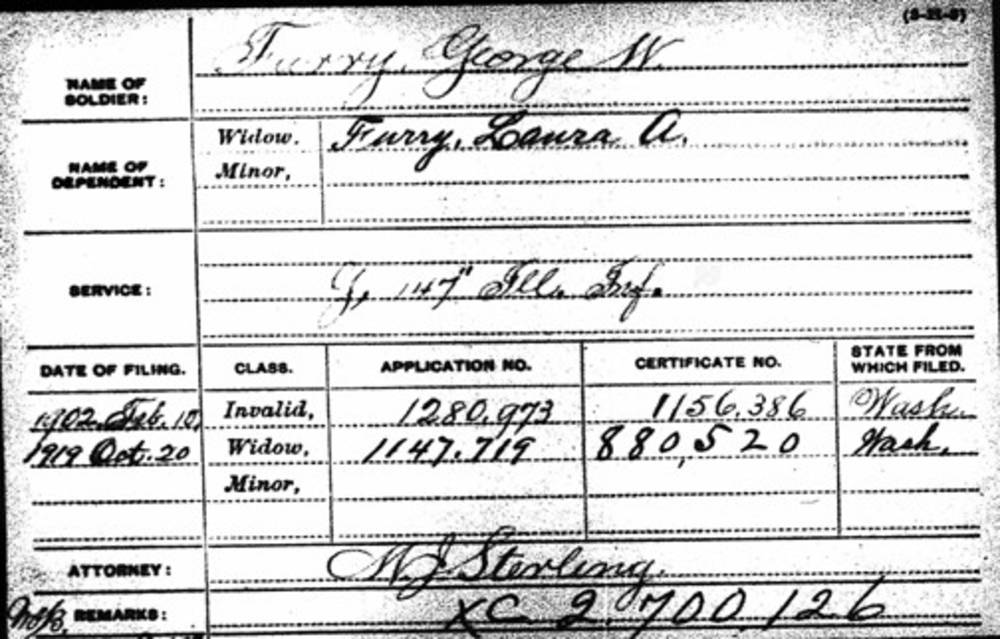 (3-21-6)
NAME OF SOLDIER: Furry, George W.
NAME OF DEPENDENT: Widow. Furry, Laura A.
Minor,
SERVICE: 147" Ill. Inf.
DATE OF FILING. CLASS. APPLICATION NO. CERTIFICATE NO. STATE FROM WHICH FILED.
1902 Feb. 10, Invalid, 1280.973 1156.386 Wash.
1919 Oct. 20 Widow, 1147.719 880,520 Wash.
Minor,
ATTORNEY: Sterling.
REMARKS: XC 2,700,126